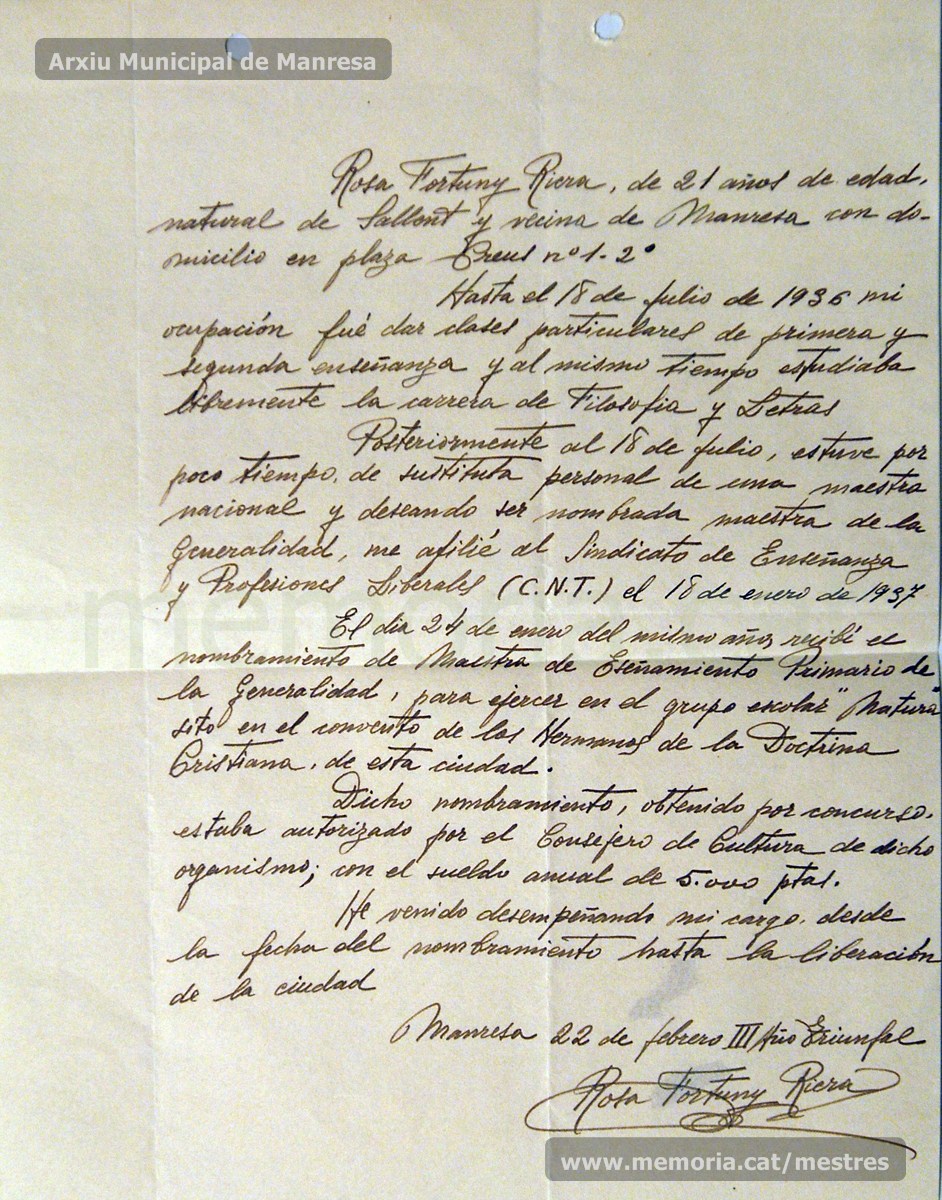 Arxiu Municipal de Manresa
Rosa Fortuny Riera, de 21 años de edad,
natural de Sallent y vecina de Manresa con do-
micilio en plaza Creus nº 1-2º
Hasta el 18 de Julio de 1936 mi
ocupación fué dar clases particulares de primera y
segunda enseñanza y al mismo tiempo estudiaba
libremente la carrera de Filosofia y Letras
Posteriormente al 18 de Julio, estuve por
poco tiempo, de sustituta personal de una maestra
nacional y deseando ser nombrada maestra de la
Generalidad, me afilié al Sindicato de Enseñanza
y Profesiones Liberales (C.N.T.) el 18 de enero de 1937
El dia 24 de enero del mismo año, recibí el
nombramiento de Maestra de Eseñamiento Primario de
la Generalidad, para ejercer en el grupo escolar "Natura"
sito en el convento de los Hermanos de la Doctrina
Cristiana, de esta ciudad.
Dicho nombramiento, obtenido por concurso,
estaba autorizado por el Consejero de Cultura de dicho
organismo; con el sueldo anual de 5.000 ptas.
He venido desempeñando mi cargo, desde
la fecha del nombramiento hasta la liberación
de la ciudad
Manresa 22 de febrero III Año Triunfal
Rosa Fortuny Riera
www.memoria.cat/mestres